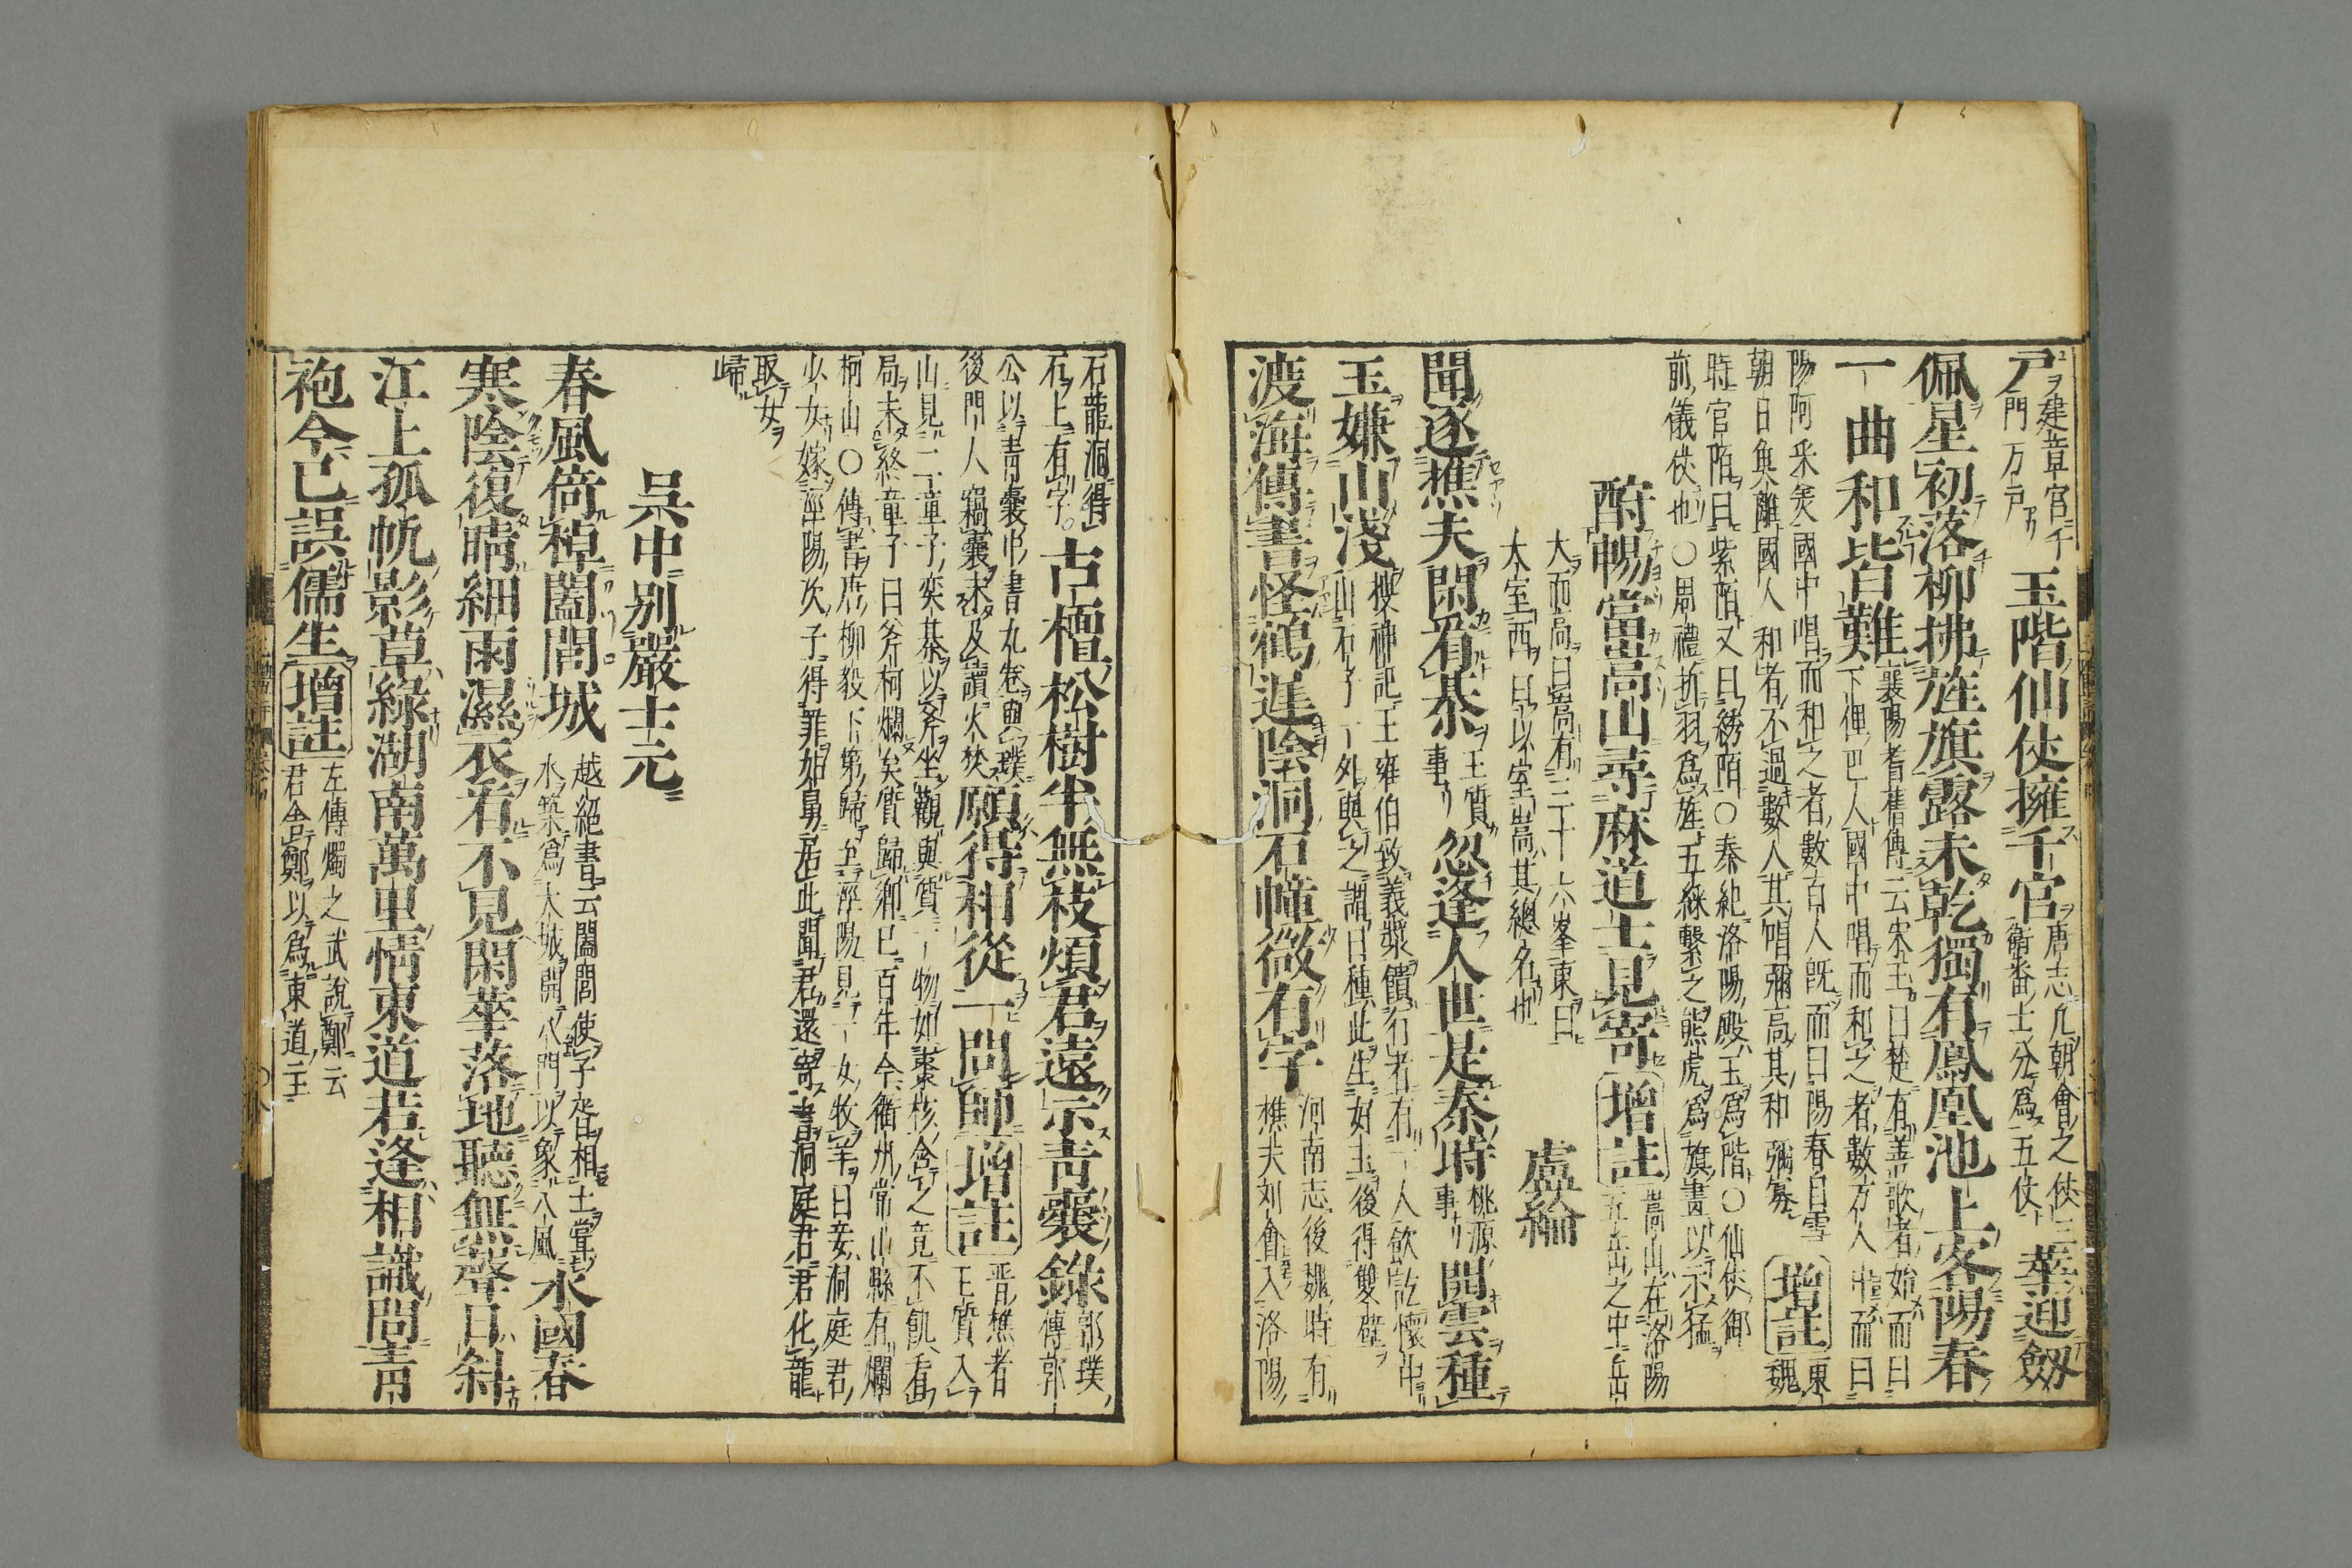 戸建章宮千
門万戸玉階仙仗擁千官唐志凢朝會之仗三
衛畨士分爲五仗華迎劔
佩星初落柳拂旌旗露未乾獨有鳳凰池上客陽春
一曲和皆難襄陽耆舊傳云宋玉曰楚有善歌者始而曰
下俚巴人國中唱而和之者數万人中而曰
陽阿采菱國中唱而和之者數百人既而曰陽春白雪
朝日魚離國人和者不過數人其唱彌高其和彌寡增註東
魏
時官陌曰紫陌又曰綉陌○秦紀洛陽殿玉爲階○仙仗御
前儀仗也○周禮折羽爲旌五綵繫之熊虎爲旗畫以示猛
酧暢當嵩山尋麻道士見寄增註嵩山在洛陽
五岳之中岳
大而高曰嵩有三十六峯東曰
太室西曰少室嵩其總名也
盧綸
聞逐樵夫閑看棊王質
事忽逢人世是秦時桃源
事開雲種
玉嫌山淺搜神記王雍伯致義漿饋行者有一人飲訖懷中
出石子一升與之謂曰種此生好玉後得雙璧
渡海傳書怪鶴遲陰洞石幢微有字河南志後魏時有
樵夫刘會入洛陽
石龍洞得
石上有字古檀松樹半無枝煩君遠示青囊錄郭璞
傳郭
公以青囊中書九卷與璞
後門人竊囊未及讀火焚願得相從一問師增註晋樵者
王質入
山見二童子奕棊以斧坐觀與質一物如棗核含之竟不飢看
局未終童子曰斧柯爛矣質歸鄉已百年今衢州常山縣有爛
柯山○傳書唐柳毅下第歸至涇陽見一女牧羊曰妾洞庭君
少女嫁涇陽次子得罪姑舅居此聞君還寄書洞庭君君化龍
取女
歸
吳中別嚴士元
春風倚棹闔閭城越絕書云闔閭使子胥相土甞
水築爲大城開八門以象八風水國春
寒陰復晴細雨濕衣看不見閑華落地聽無聲日斜
江上孤帆影草綠湖南萬里情東道若逢相識問青
袍今已誤儒生增註左傳燭之武說鄭云
君舍鄭以爲東道主